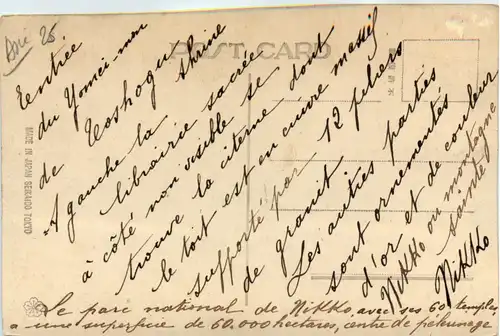 Asie 25
POST CARD
MADE IN JAPAN BENRIDO TOKYO
l'entrée
du Yomei-mon
de Toshogu shrine
A gauche la librairie sacrée
à côté non visible se
trouve la citerne dont
le toit est en cuivre massif
supporté par 12 piliers
de granit. Les autres parties
sont ornementés
d'or et de couleur
Nikko ou montagne
sainte
Nikko
Le parc national de Nikko, avec ses 60 temples
a une superficie de 60.000 hectares, centre de pélerinages